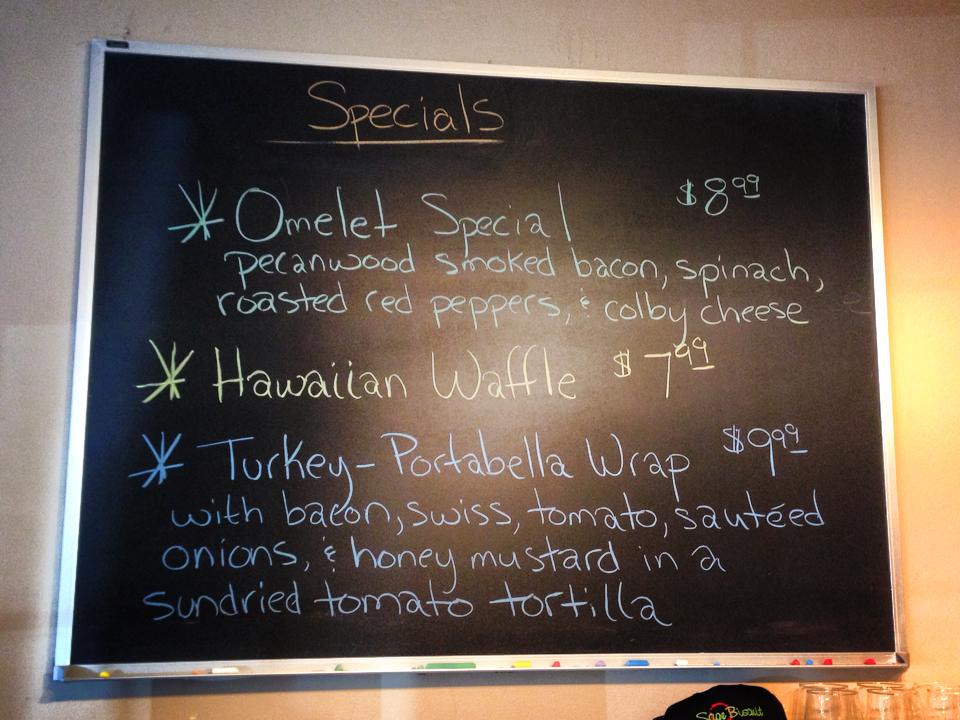 Specials
* Omelet Special $8.99
pecanwood smoked bacon, spinach,
roasted red peppers, & colby cheese
* Hawaiian Waffle $7.99
* Turkey-Portabella Wrap $9.99
with bacon, swiss, tomato, sautéed
onions, & honey mustard in a
sundried tomato tortilla
Sage Biscuit